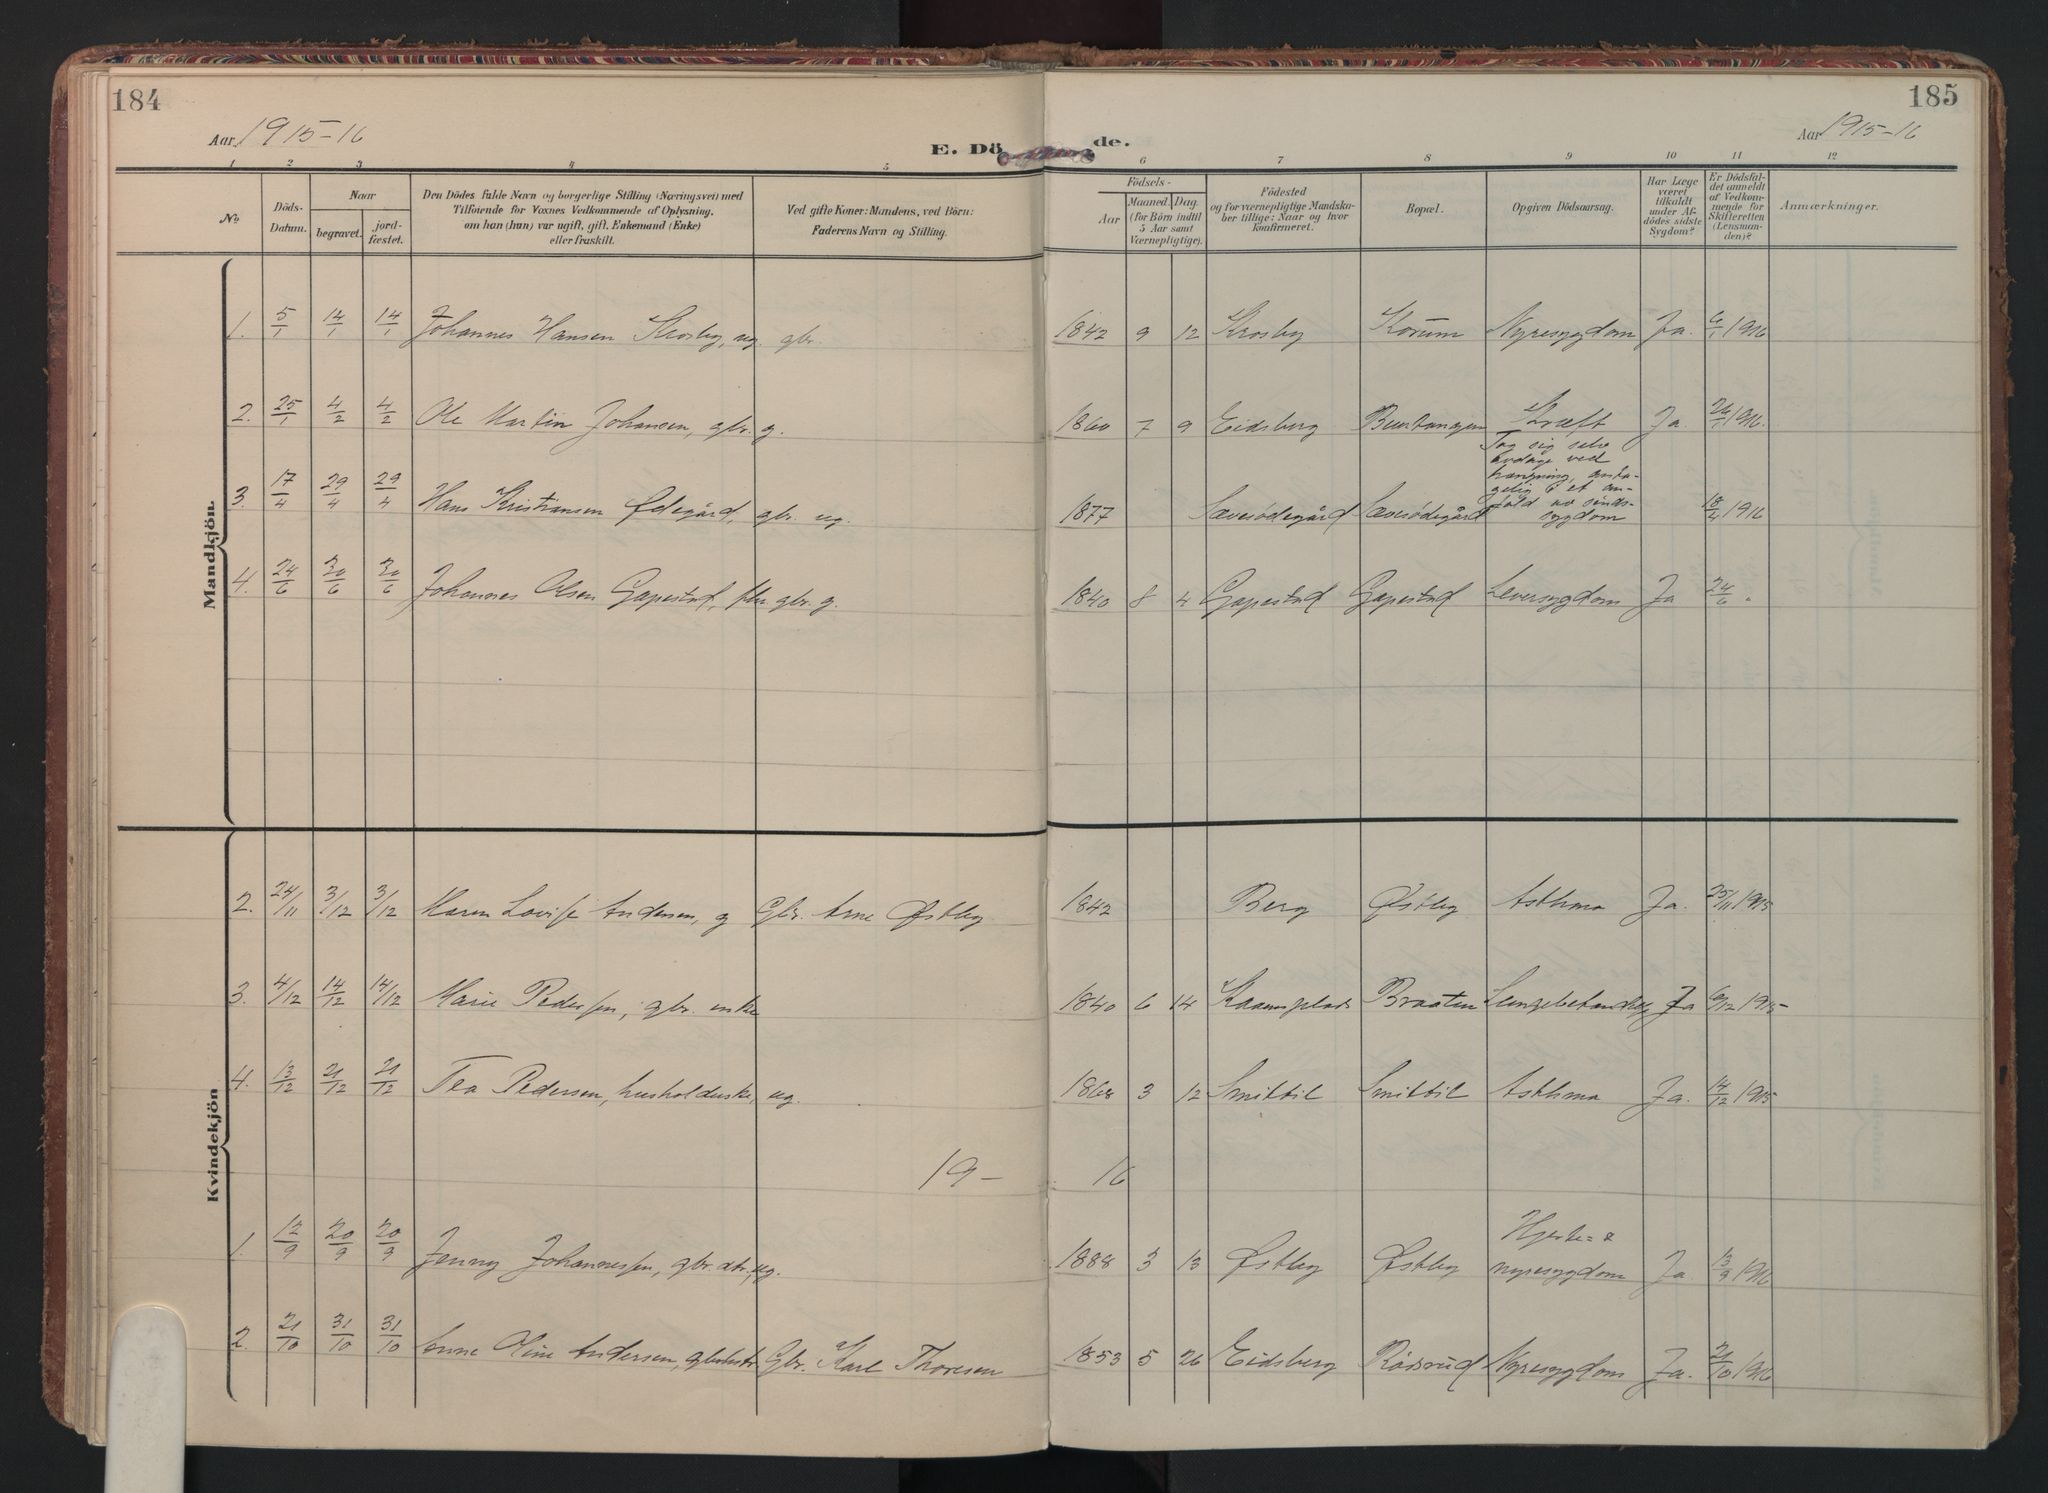 184
185
Aar 1915-16
E. Dö de.
Aar 1915-16
1 2 3 4 5 6 7 8 9 10 11 12
No.
Döds-Datum.
Naar
begravet.
jord-fæstet.
Den Dödes fulde Navn og borgerlige Stilling (Næringsvei) med
Tilföiende for Voxnes Vedkommende af Oplysning.
om han (hun) var ugift, gift. Enkemand (Enke)
eller fraskilt.
Ved gifte Koner: Mandens, ved Börn:
Faderens Navn og Stilling.
Födsels-
Aar
Maaned. Dag.
(for Börn indtil
5 Aar samt
Værnepligtige).
Födested
og for værnepligtige Mandska-
ber tillige: Naar og hvor
konfirmeret.
Bopæl.
Opgiven Dödsaarsag.
Har Læge
været
tilkaldt
under Af-
dödes sidste
Sygdom?
Er Dödsfal-
det anmeldt
af Vedkom-
mende for
Skifteretten
(Lensman-
den)?
Anmærkninger.
Mandkjön.
1. 5/1 14/1 14/1 Johannes Hansen Krosby, ug. gbr. 1842 9 12 Krosby Korum Nyresygdom Ja. 6/1 1916
2. 25/1 4/2 4/2 Ole Martin Johansen, gbr. g. 1860 7 9 Eidsberg Buertangen Kræft Ja. 26/1 1916.
3. 17/4 29/4 29/4 Hans Kristiansen Ødegård, gbr. ug. 1877 Sævesödegård Sævesödegård
Tog sig selv
avdage ved
hængning, anta-
gelig i et an-
fald av sinds-
sygdom
18/4 1916
4. 24/6 30/6 30/6 Johannes Olsen Gapestad, fhv. gbr. g. 1840 8 4 Gapestad Gapestad Leversygdom Ja 24/6 "
Kvindekjön
2. 24/11 3/12 3/12 Maren Lovise Andersen, g Gbr. Arne Østby 1842 Berg Østby Asthma Ja. 25/11 1915
3. 4/12 14/12 14/12 Marie Pedersen, gbr. enke 1840 6 14 Braaten Ja 6/12 1915
4. 13/12 21/12 21/12 Tea Pedersen, husholderske, ug. 1868 3 12 Smittil Smittil Asthma Ja. 14/12 1915
19- 16
1. 12/9 20/9 20/9 Jenny Johannessen, gbr. dtr., ug. 1888 3 13 Østby Østby Hjerte= &
nyresygdom Ja 13/9 1916
2. 21/10 31/10 31/10 Anne Oline Andersen, Gbr. Karl Thoresen 1853 5 26 Eidsberg Rödsrud Nyresygdom Ja. 21/10 1916